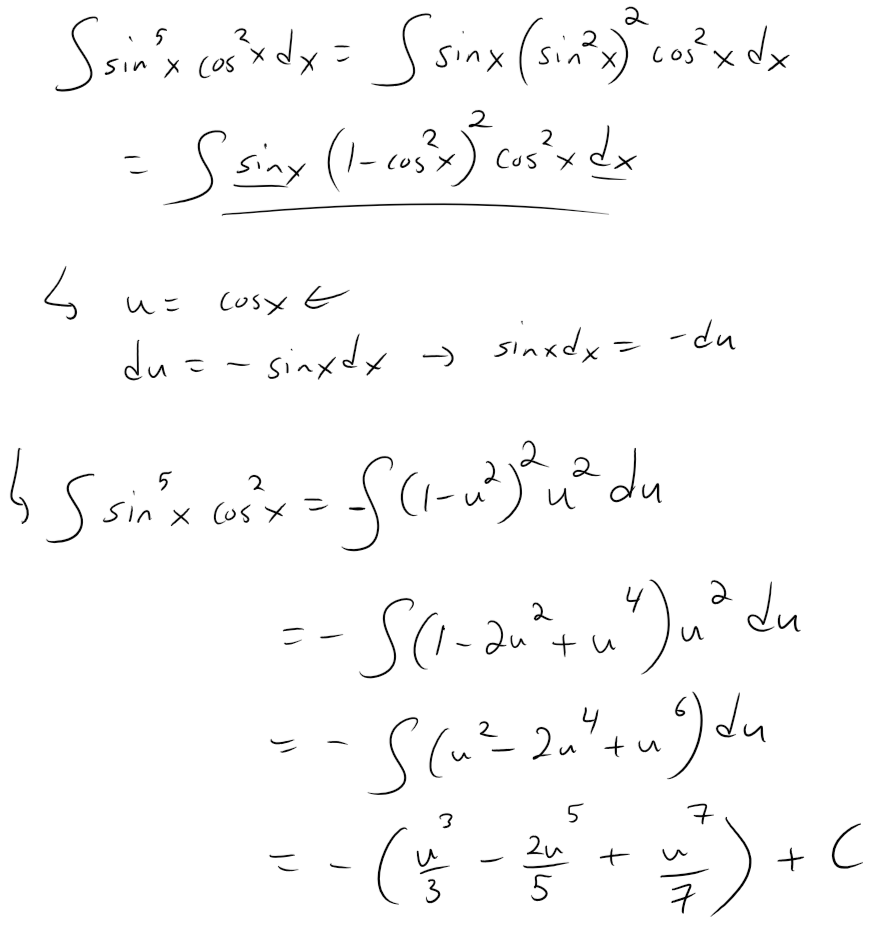 ∫ sin⁵x cos²x dx = ∫ sinx (sin²x)² cos²x dx
= ∫ sinx (1 - cos²x)² cos²x dx
↳ u = cosx ←
du = - sinxdx → sinxdx = -du
↳ ∫ sin⁵x cos²x = -∫ (1-u²)² u² du
= - ∫ (1 - 2u² + u⁴) u² du
= - ∫ (u² - 2u⁴ + u⁶) du
= - (u³/3 - 2u⁵/5 + u⁷/7) + C